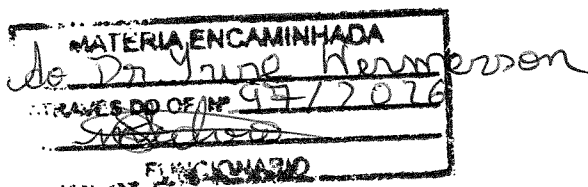 MATERIA ENCAMINHADA
do Dr Yuno Wermerson
ATRAVES DO OF/Nº 97/2026
FUNCIONARIO